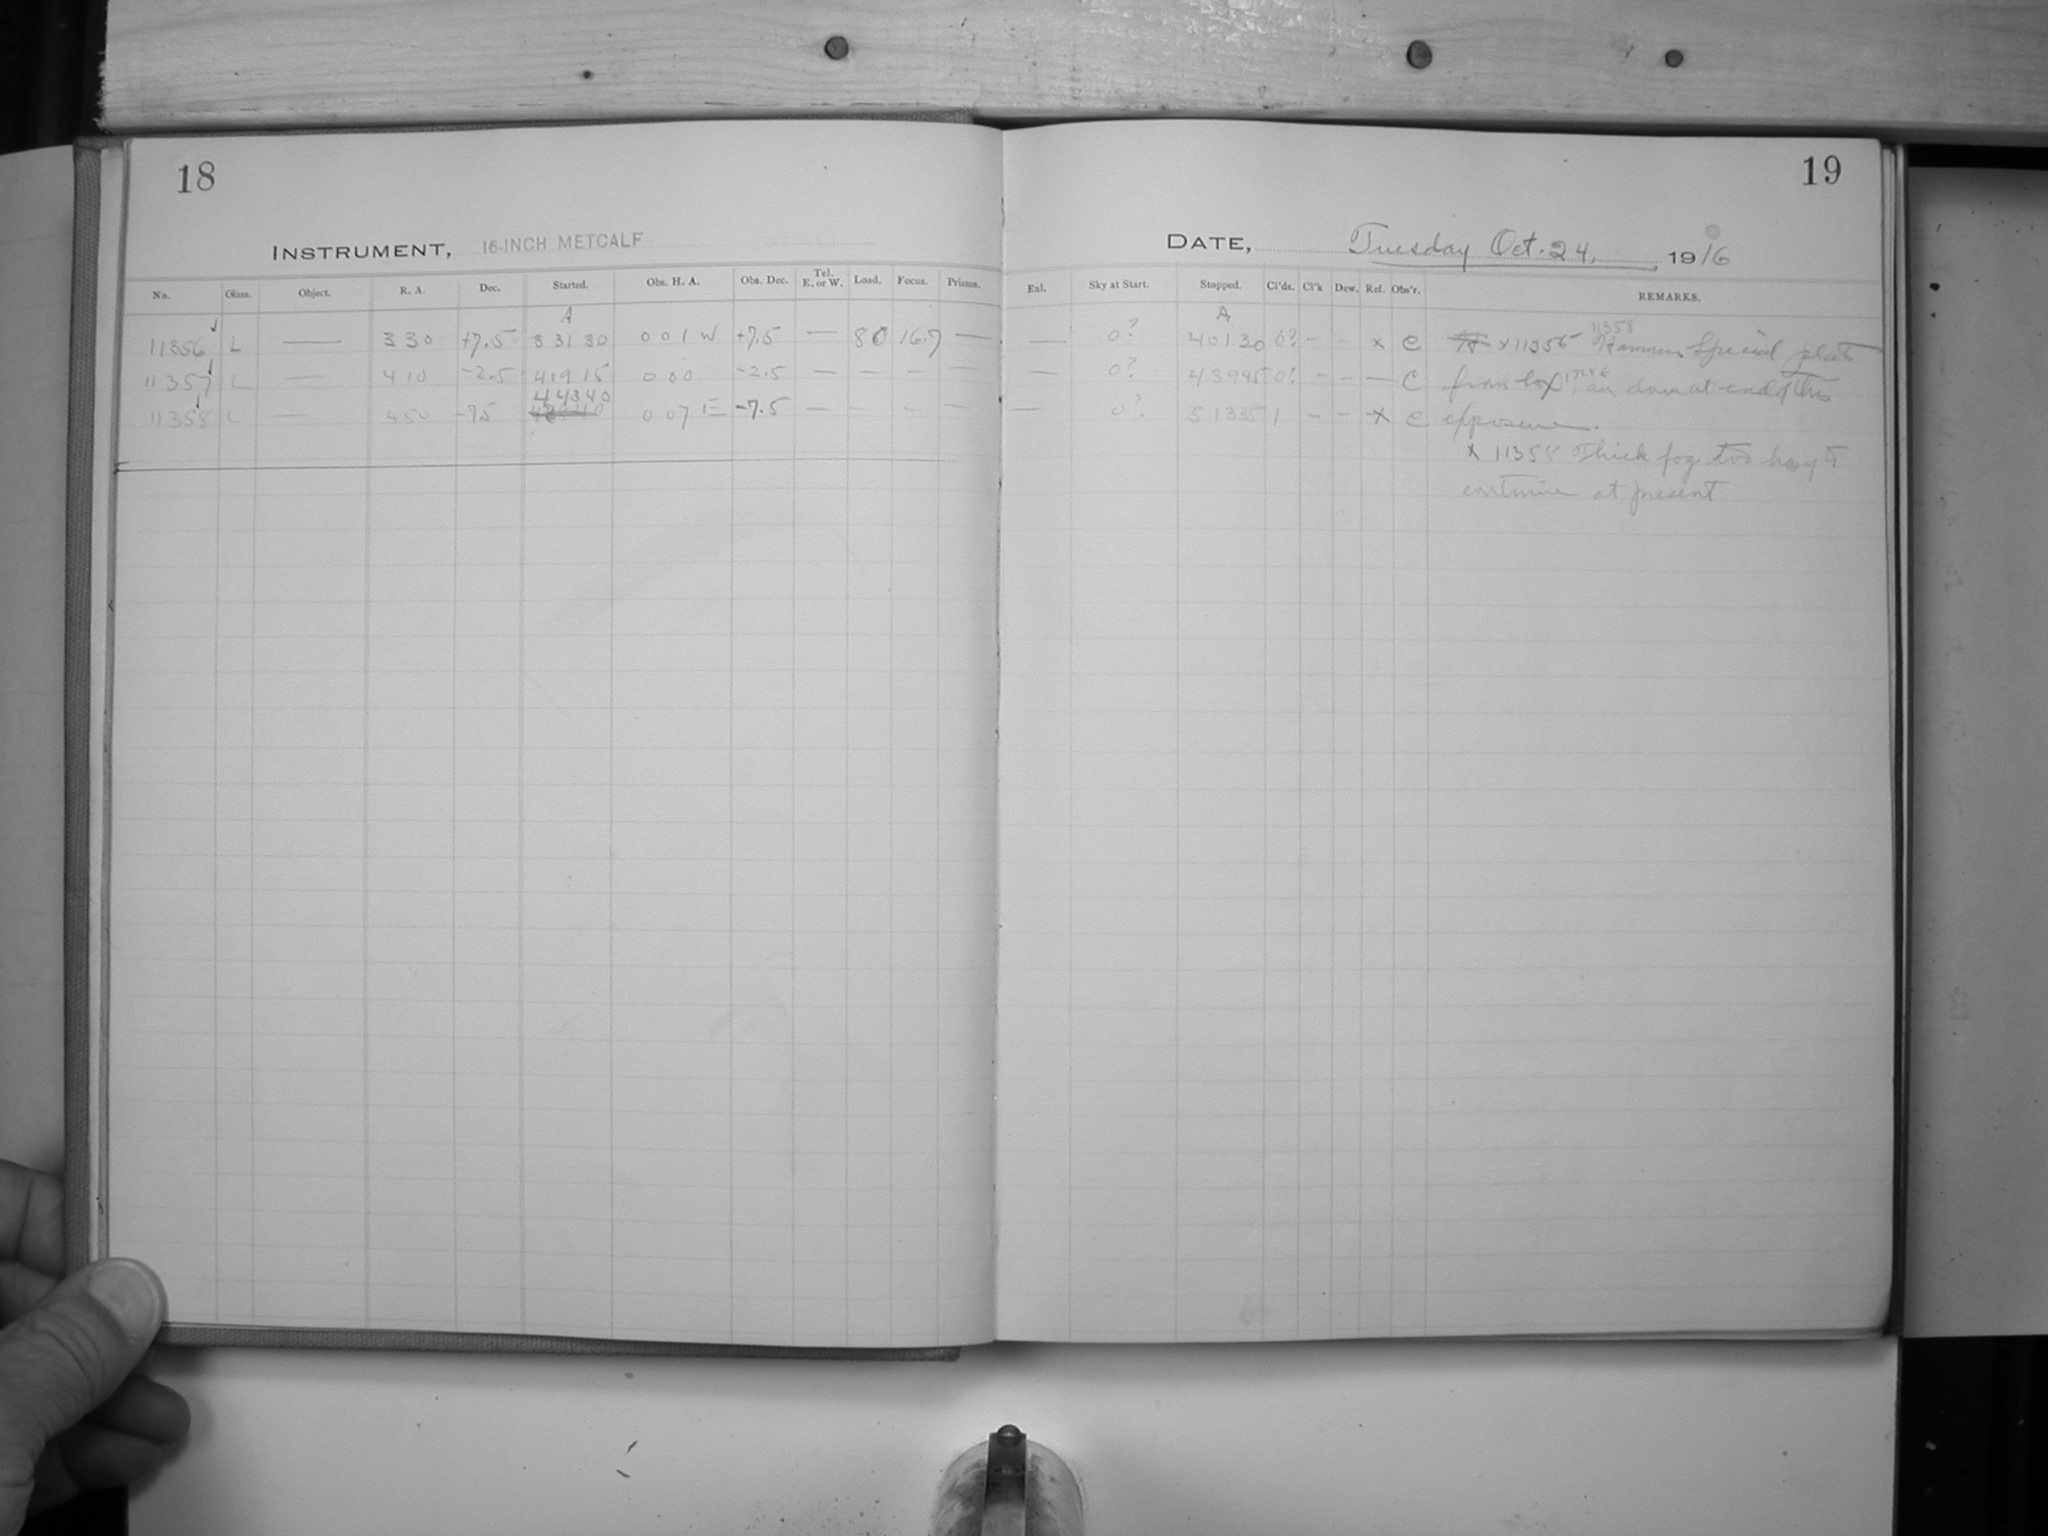 18
19
INSTRUMENT, 16-INCH METCALF
DATE, Tuesday Oct. 24, 1916
No. Glass. Object. R. A. Dec. Started. Obs. H. A. Obs. Dec. Tel. E. or W. Load. Focus. Prisms.
Enl. Sky at Start. Stopped. Cl'ds. Cl'k Dew. Ref. Obs'r. REMARKS.
A
A
11356 L — 3 30 +7.5 3 31 30 0 01 W +7.5 — 80 16.7 — — 0? 4 01 30 0? - - x C x 11356 11358 Special plate
11357 L — 4 10 -2.5 4 09 15 0 00 -2.5 — — — — — 0? 4 39 45 0? - - — C from box down at end of this
4 43 40
11358 L — 4 50 -7.5 0 07 E -7.5 — — — — — 0? 5 13 35 1 - - x C exposure.
x 11358 Thick fog too hazy to
continue at present